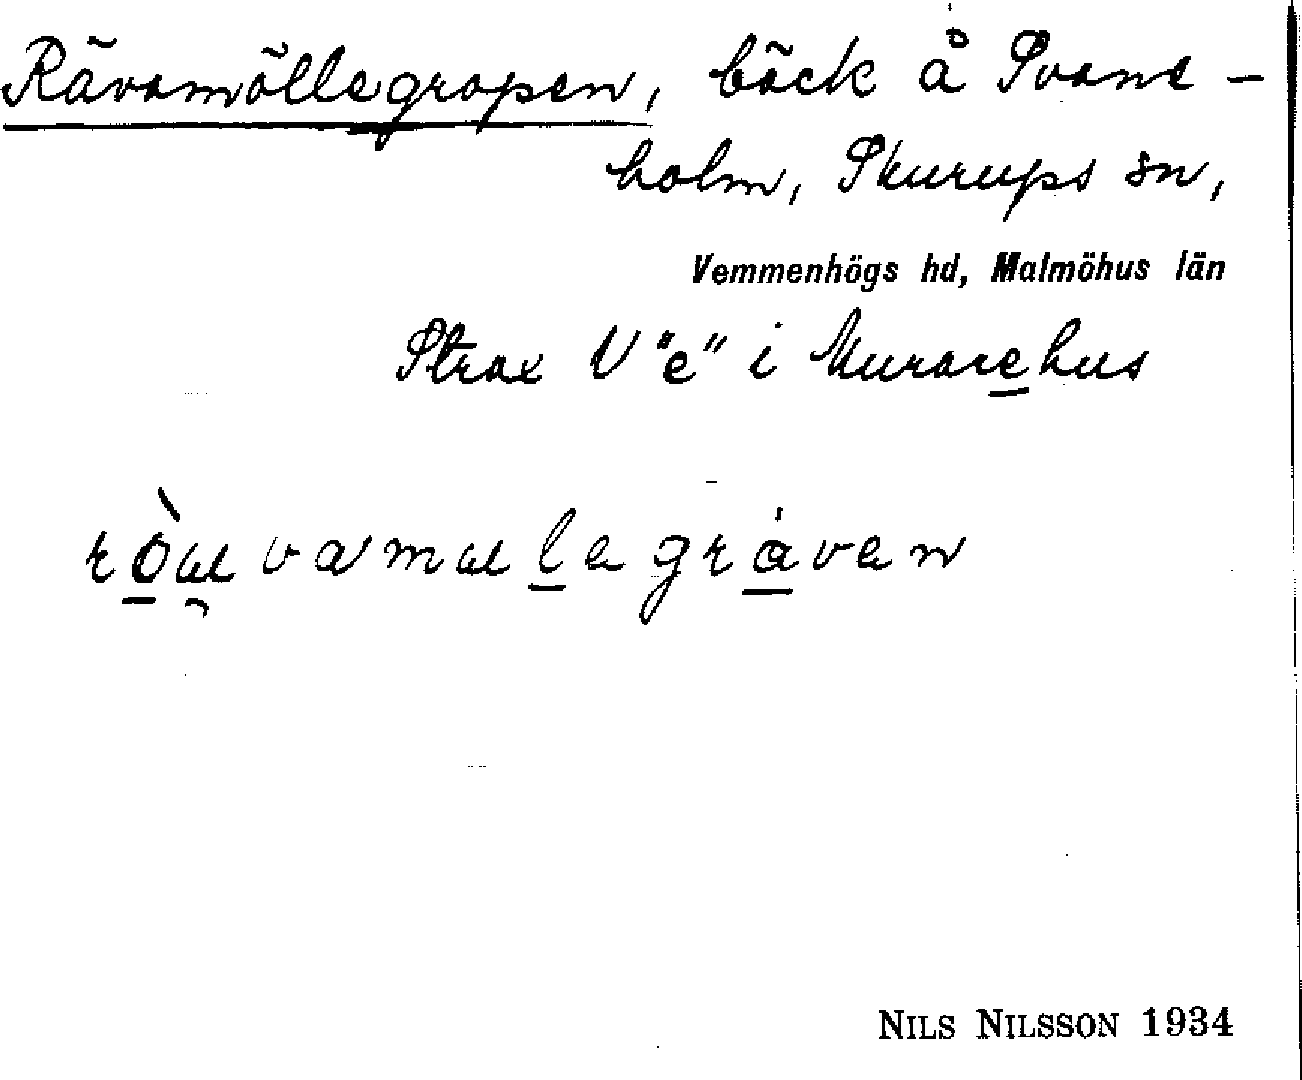 Rävamöllegropen, bäck å Svans-
holm, Skurups sn,
Vemmenhögs hd, Malmöhus län
Strax V "e" i Murarehus
NILS NILSSON 1934